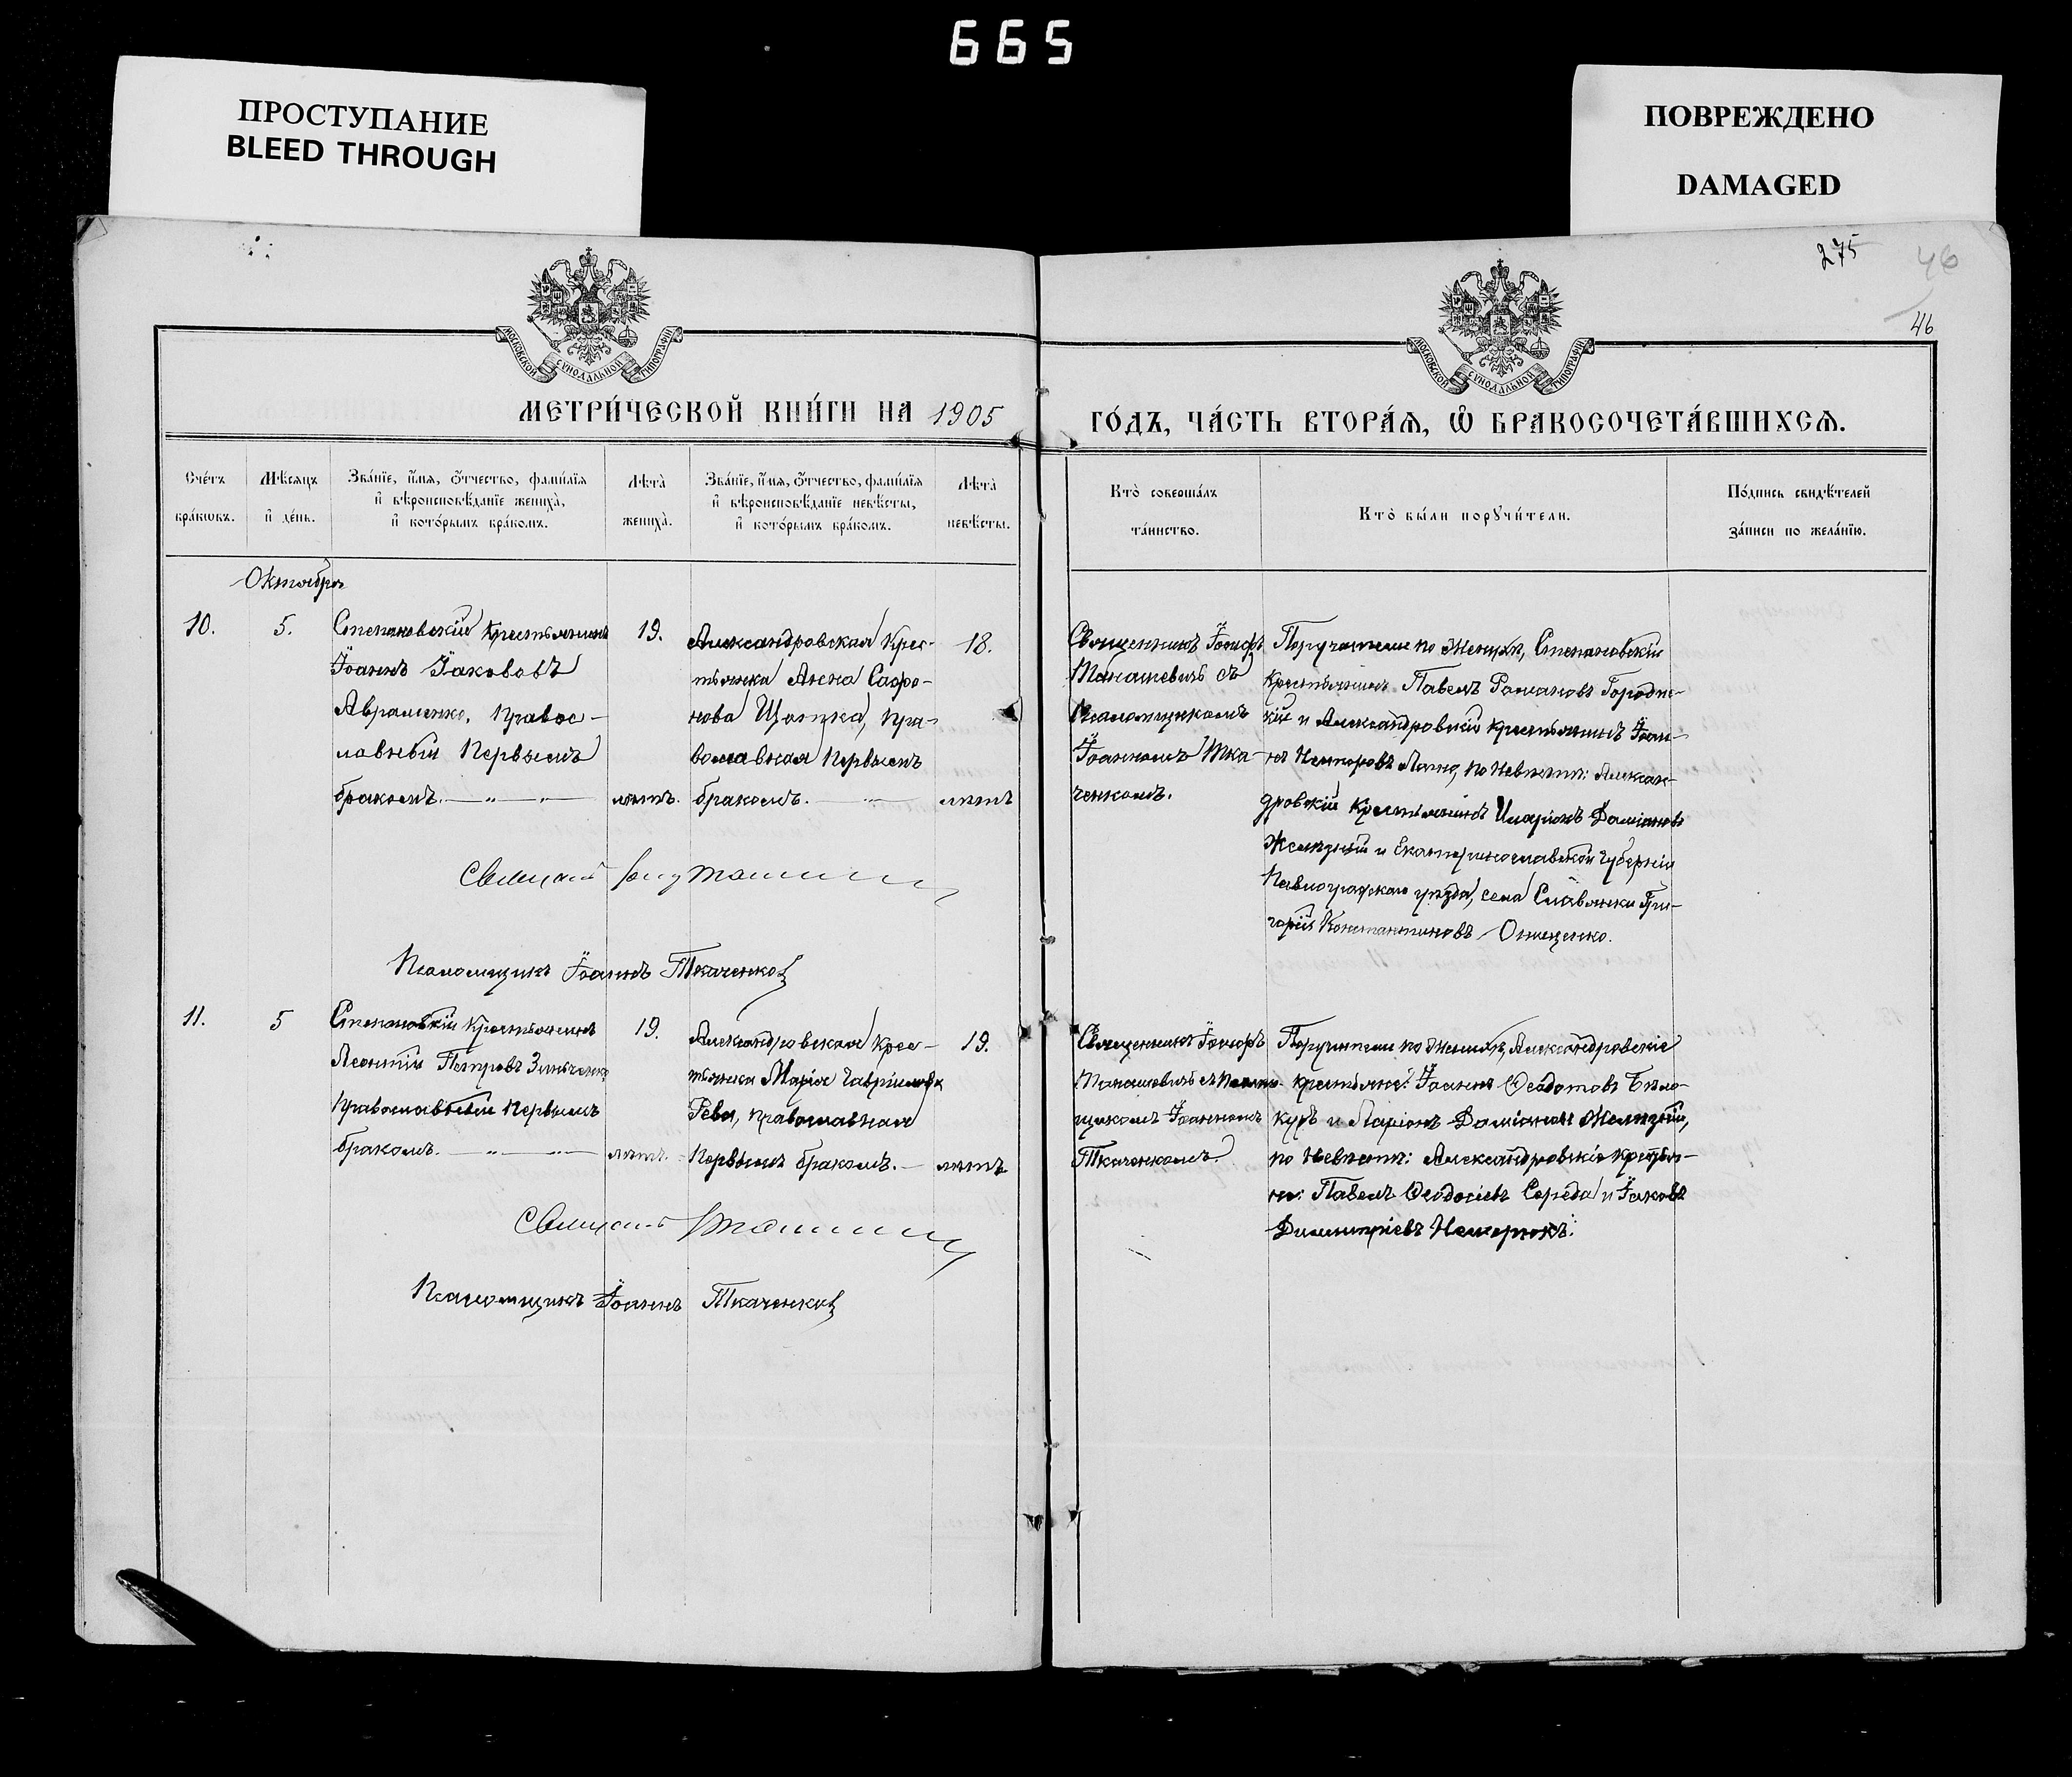 665
ПРОСТУПАНИЕ
BLEED THROUGH
ПОВРЕЖДЕНО
DAMAGED
275
46
46
МОСКОВСКОЙ СѴНОДАЛЬНОЙ ТИПОГРАФІИ
МОСКОВСКОЙ СѴНОДАЛЬНОЙ ТИПОГРАФІИ
МЕТРИ́ЧЕСКОЙ КНИ́ГИ НА 1905
ГО́ДЪ, ЧА́СТЬ ВТОРА́Я, Ѽ БРАКОСОЧЕТА́ВШИХСЯ.
Сче́тъ
бра́кѡвъ.
Мѣ́сяцъ
и҆ де́нь.
Зва́нїе, и҆́мя, ѻ҆́тчество, фами́лїя
и҆ вѣроисповѣ́данїе жениха̀,
и҆ кото́рымъ бра́комъ.
Лѣта̀
жениха̀.
Зва́нїе, и҆́мя, ѻ҆́тчество, фами́лїя
и҆ вѣроисповѣ́данїе невѣ́сты,
и҆ кото́рымъ бра́комъ.
Лѣта̀
невѣ́сты.
Кто̀ соверша́лъ
та́инство.
Кто̀ бы́ли порꙋчи́тели.
По́дпись свидѣ́телей
за́писи по жела́нїю.
Октябрь
10.
5.
Степановскій крестьянинъ
Іоаннъ Іакововъ
Авраменко, Правос-
лавный Первымъ
бракомъ. — " — " —
19.
лѣтъ.
Александровская крес-
тьянка Анна Сафро-
нова Щопка, Пра-
вославная Первымъ
бракомъ. — " —
18.
лѣтъ
Священникъ Іосифъ
Манашевичъ съ
Псаломщикомъ
Іоанномъ Тка-
ченкомъ.
Поручители по Женихѣ, Степановскій
крестьянинъ Павелъ Романовъ Городни-
кій и Александровскій крестьянинъ Іоан-
нъ Несторовъ Лахно, по Невѣстѣ: Алексан-
дровскій крестьянинъ Иларіонъ Даміановъ
Желѣзный и Екатеринославской губерніи
Павлоградскаго уѣзда, села Славянки Гри-
горій Константиновъ Онищенко.
Священникъ
Псаломщикъ Іоаннъ Ткаченковъ
11.
5
Степановскій крестьянинъ
Леонтій Петровъ Зинченко
Православный Первымъ
бракомъ. — " — " —
19.
лѣтъ.
Александровская крес-
тьянка Марія Гавріилова
Рева, православная
Первымъ бракомъ. —
19.
лѣтъ
Священникъ Іосифъ
Манашевичъ съ Псалом-
щикомъ Іоанномъ
Ткаченкомъ.
Поручители по Женихѣ, Александровскіе
крестьяне: Іоаннъ Ѳеодотовъ Бѣло-
куръ и Ларіонъ Даміановъ Желѣзный,
по Невѣстѣ: Александровскіе крестья-
не: Павелъ Ѳеодосіевъ Середа и Іаковъ
Димитріевъ
Священникъ
Псаломщикъ Іоаннъ Ткаченковъ